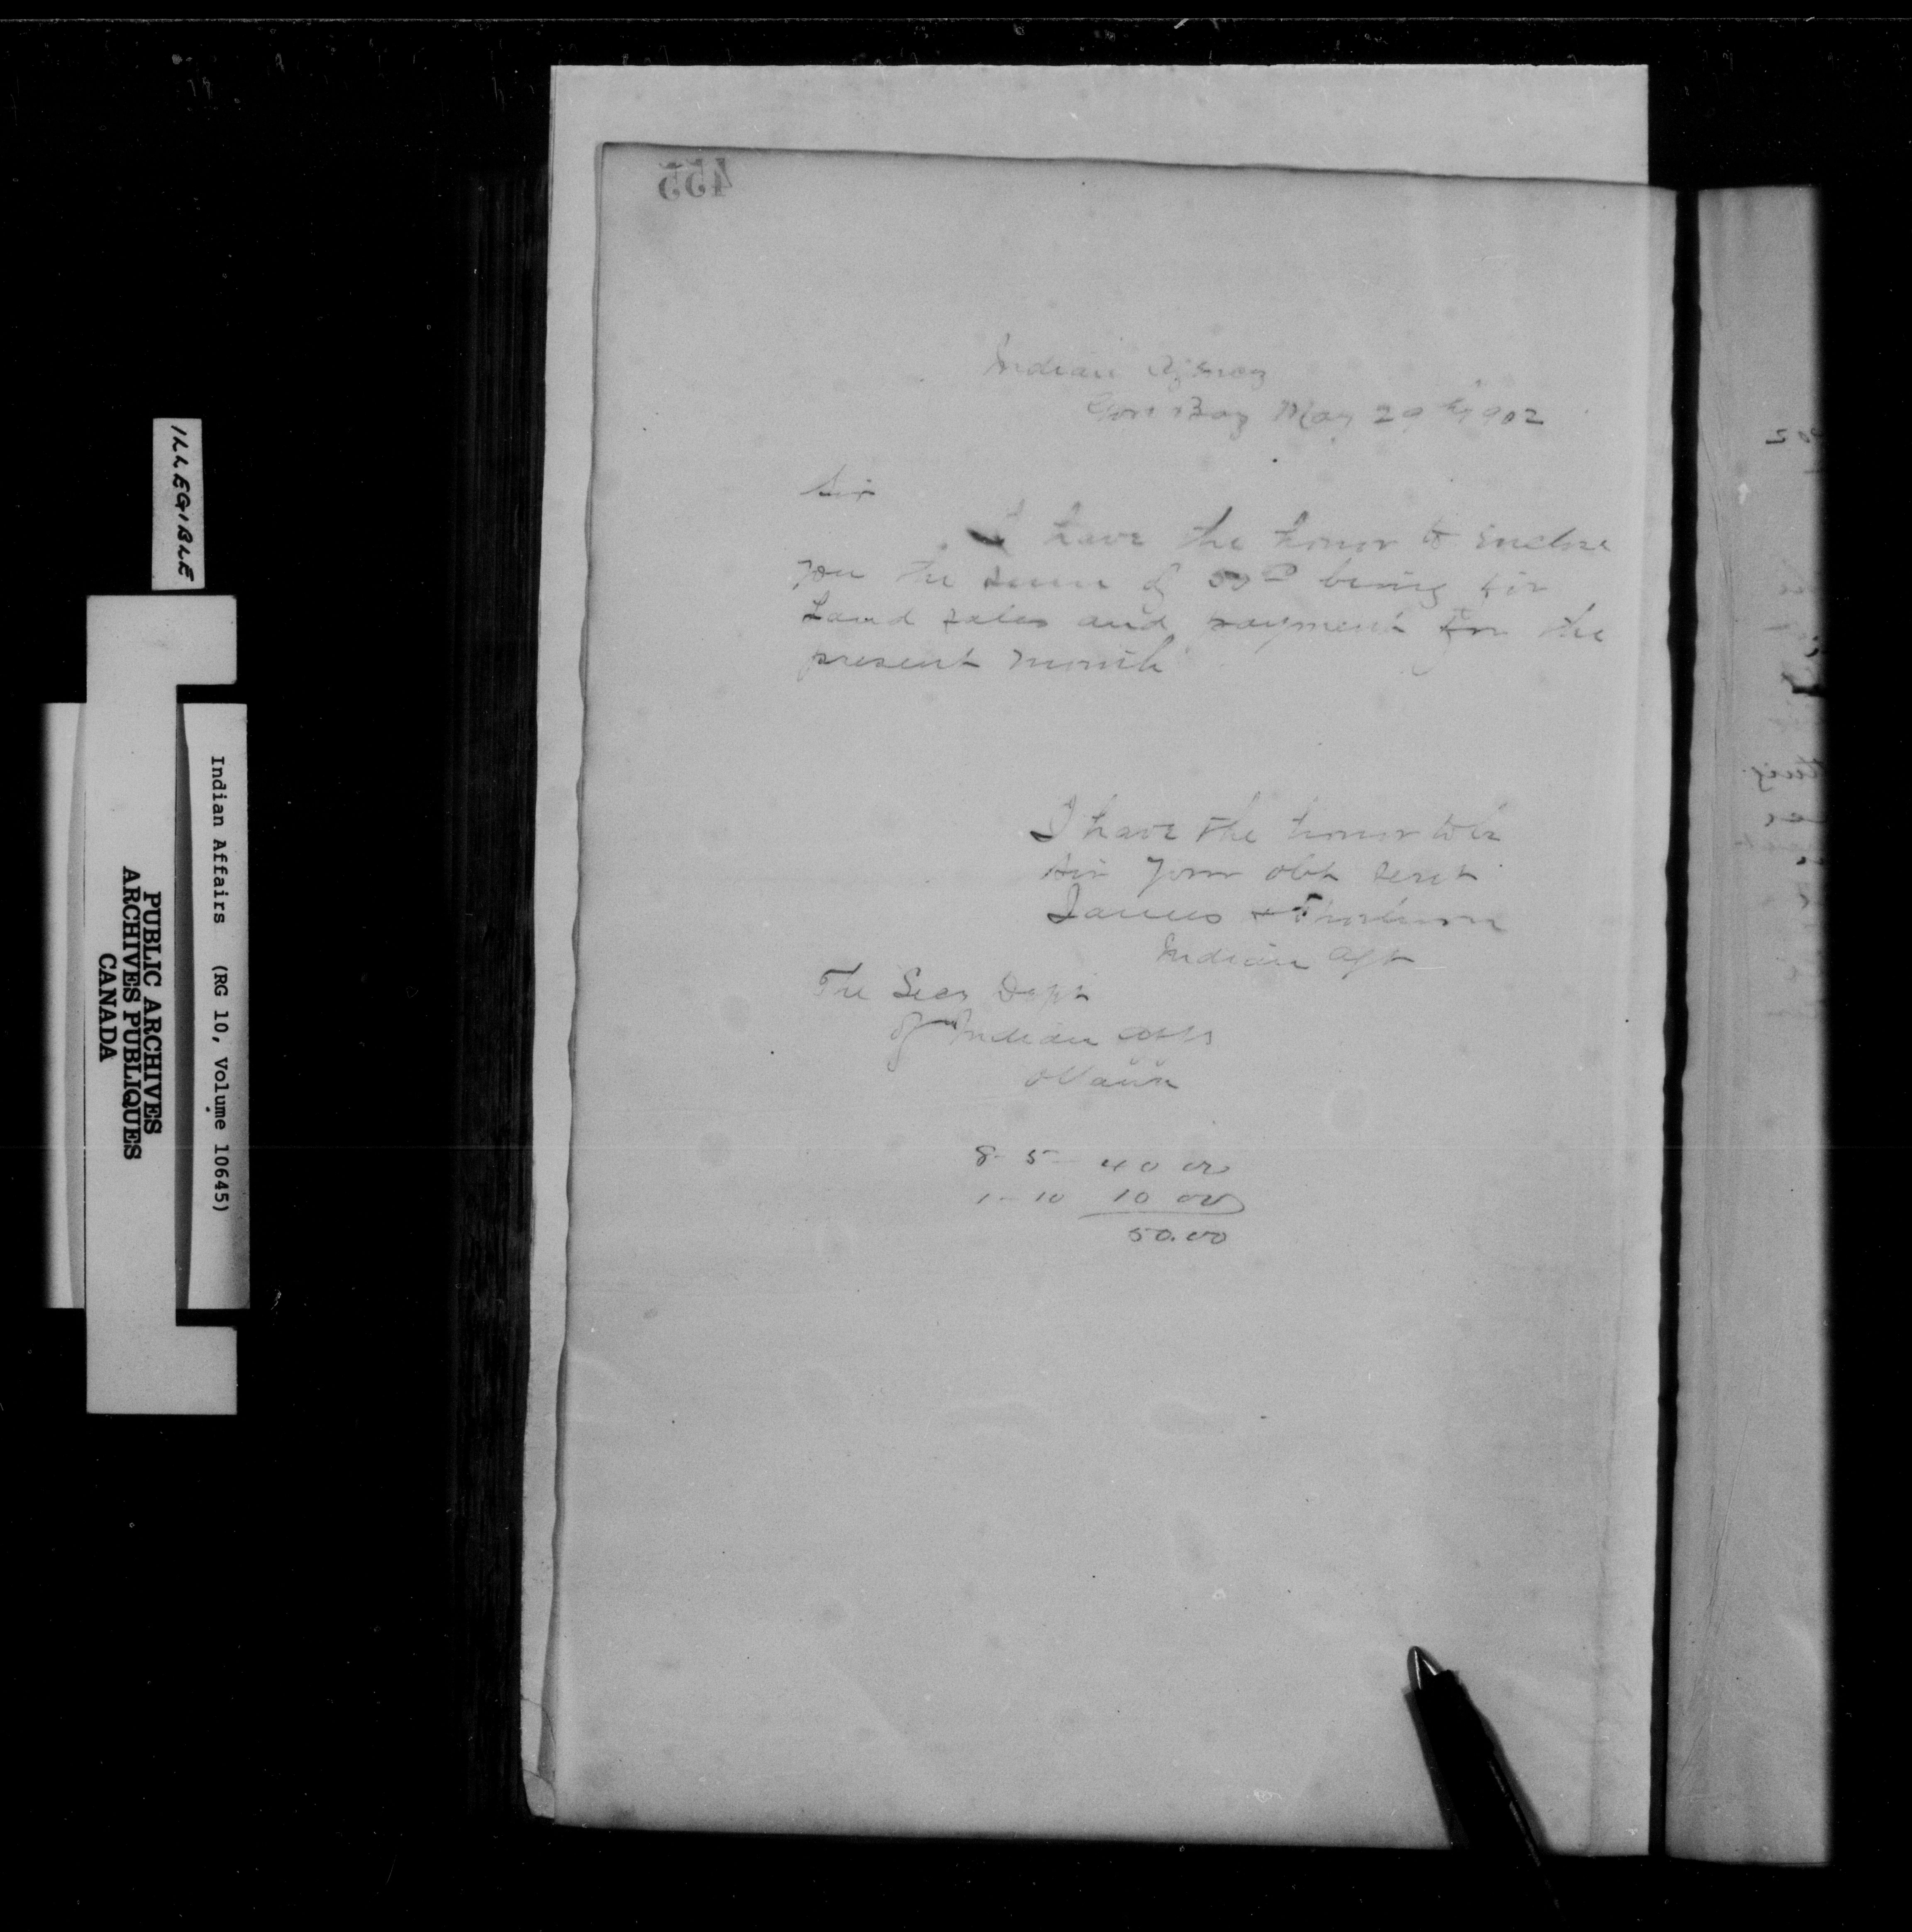 455
Indian Agency
Gore Bay May 29th 1902
Sir
I have the honor to enclose
you the sum of 50 00 being for
Land sales and payment for the
present month
I have the honor to be
Sir Your obt Servt
James
Indian Agt
The Secy Dept
of Indian Affs
Ottawa
8 - 5 - 40 00
1 - 10 10 00
50.00
ILLEGIBLE
Indian Affairs (RG 10, Volume 10645)
PUBLIC ARCHIVES
ARCHIVES PUBLIQUES
CANADA